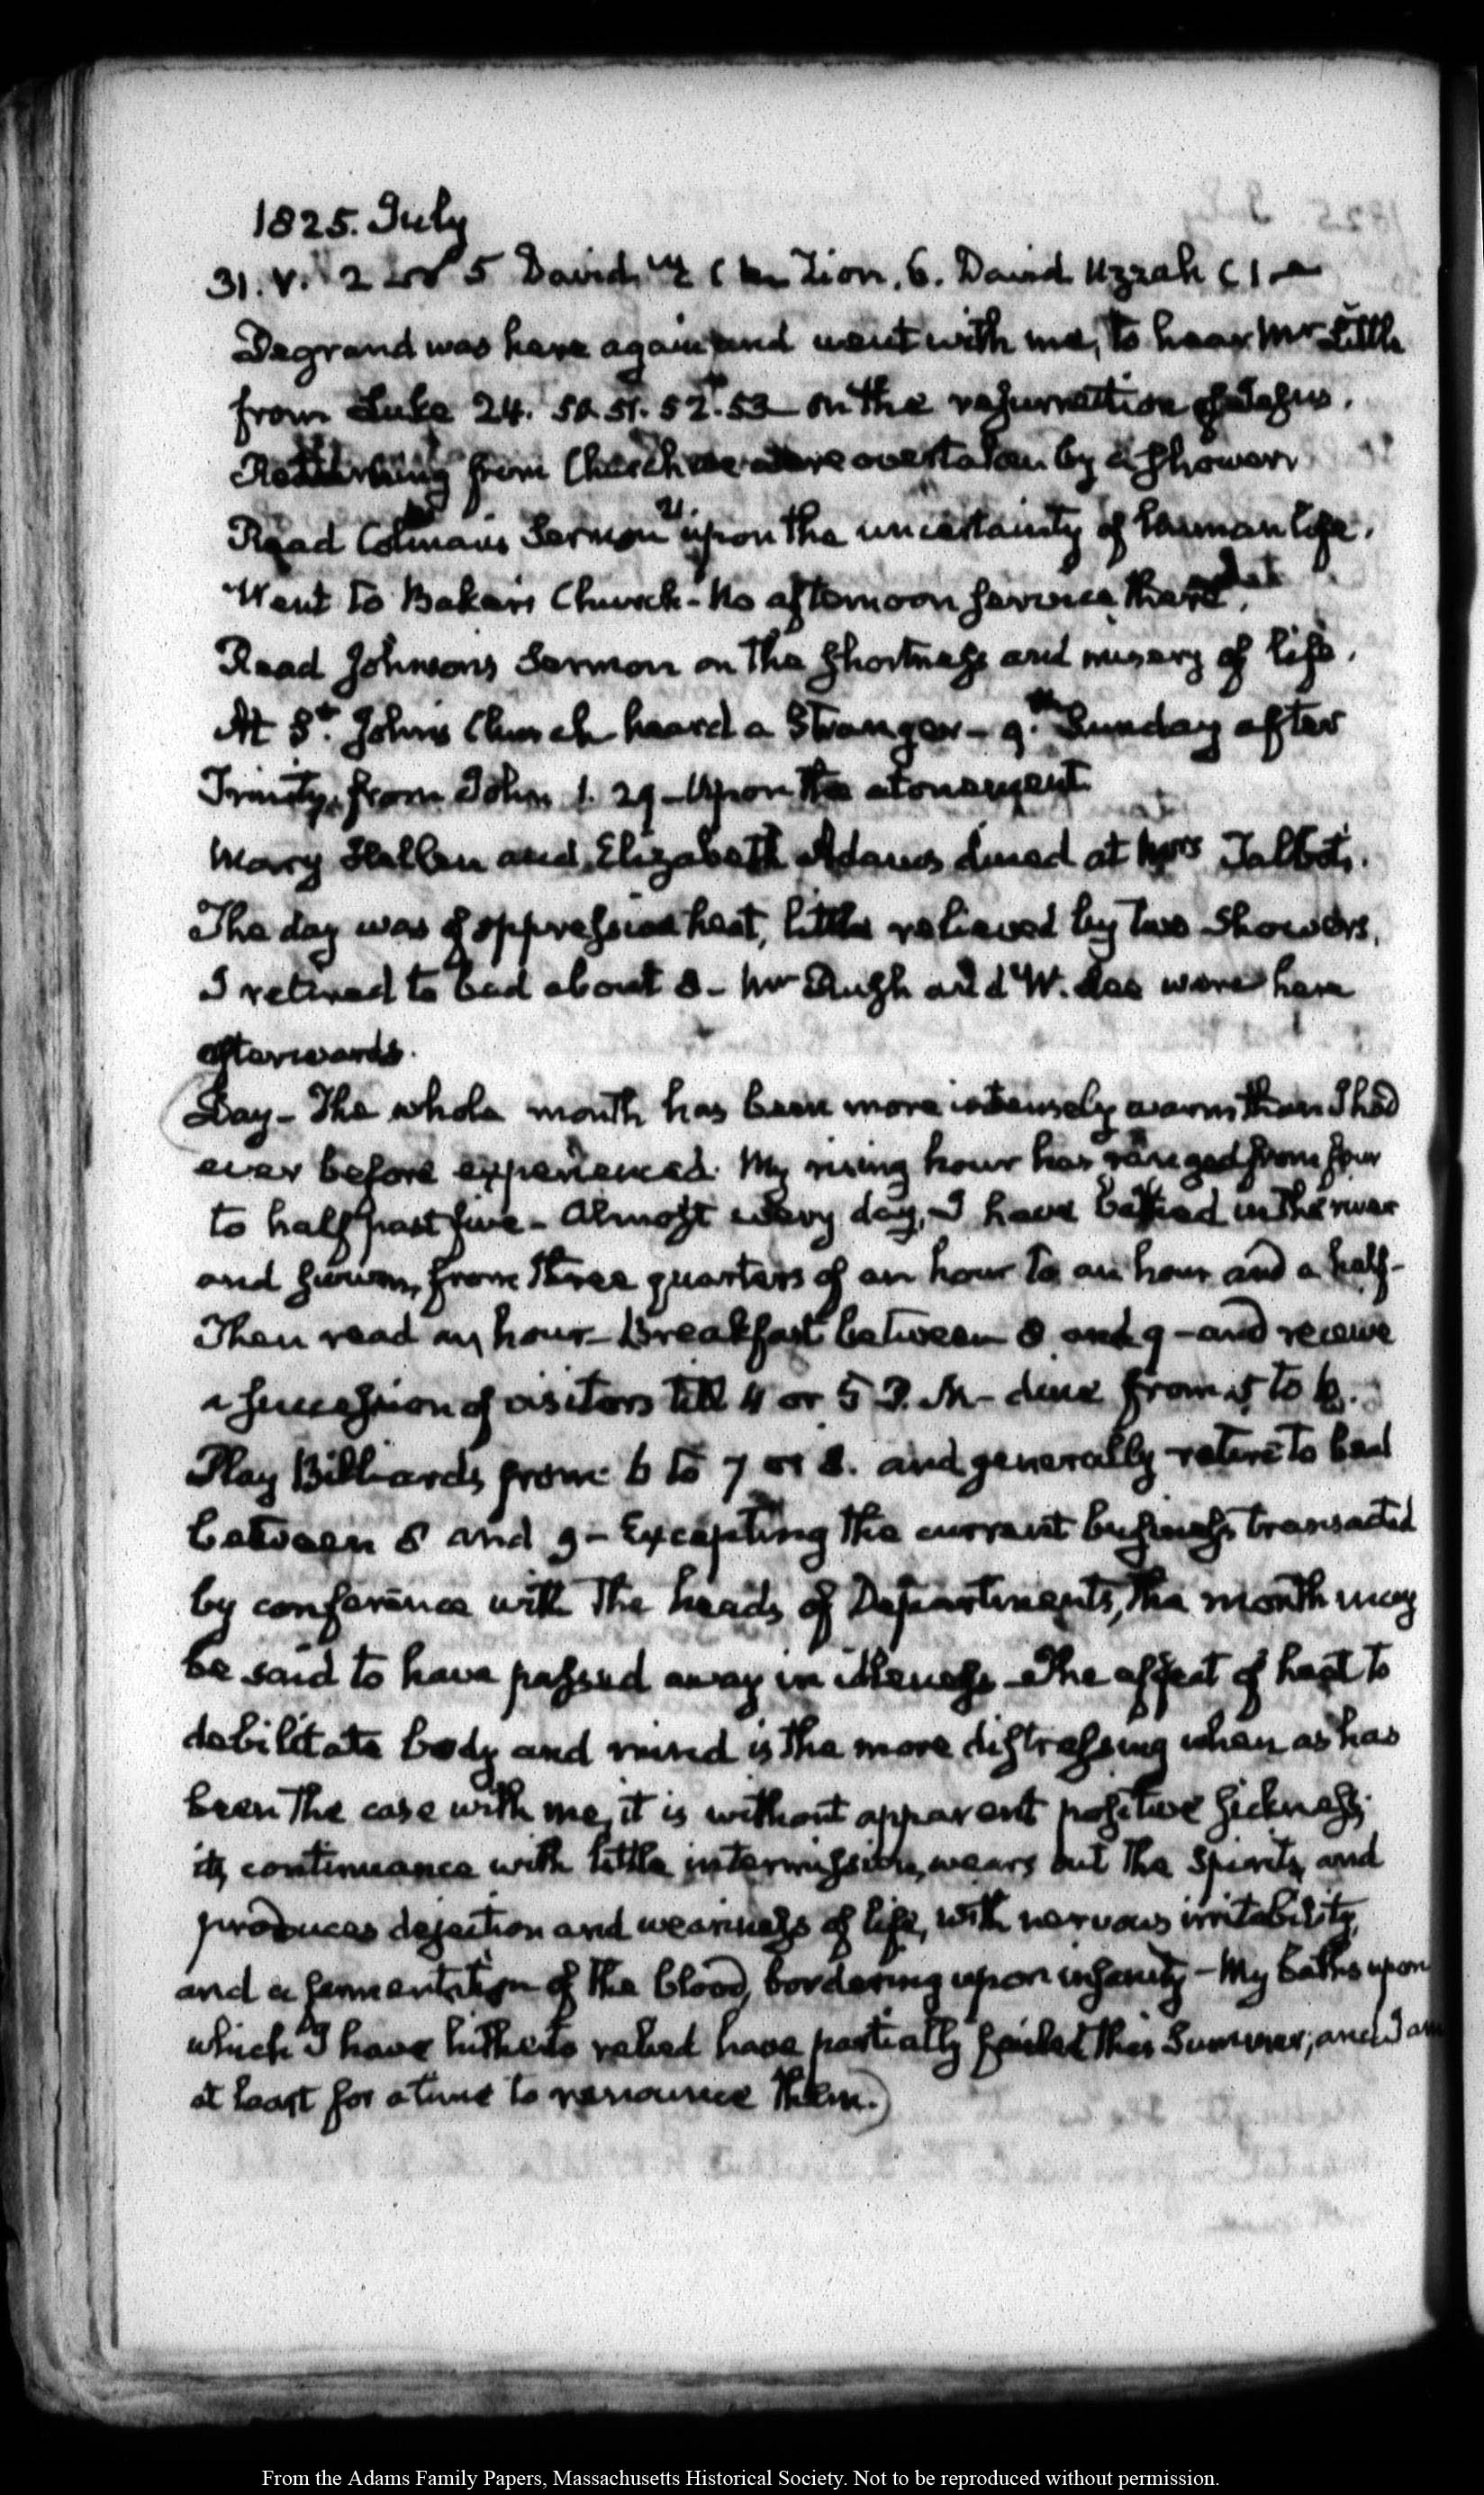 1825. July
31. V. 2 5 David Zion. 6. David Uzzah
Degrand was here again and went with me, to hear Mr Little
from Luke 24. 50. 51. 52. 53 on the resurrection of Jesus.
Returning from Church we were overtaken by a shower
Read Colmans Sermon 21. upon the uncertainty of human life.
Went to Bakers Church - No afternoon service there
Read Johnsons Sermon on the shortness and misery of life.
At St. Johns Church heard a Stranger - 9th Sunday after
Trinity, from John 1. 29 - Upon the atonement
Mary Hellen and Elizabeth Adams dined at Mrs Talbot's.
The day was of oppressive heat, little relieved by two showers.
I retired to bed about 8 - Mr Pugh and W. Lee were here
afterwards.
Day - The whole month has been more intensely warm than I had
ever before experienced. My rising hour has ranged from four
to half past five - Almost every day, I have bathed in the river
and swum, from three quarters of an hour to an hour and a half -
Then read an hour - Breakfast between 8 and 9 - and receive
a succession of visitors till 4 or 5 P. M - dine from 5 to 6.
Play Billiards from 6 to 7 or 8. and generally retire to bed
between 8 and 9 - Excepting the current business transacted
by conference with the heads of Departments, the month may
be said to have passed away in idleness - The effect of heat to
debilitate body and mind is the more distressing when as has
been the case with me, it is without apparent positive sickness.
its continuance with little intermission, wears out the spirits and
produces dejection and weariness of life, with nervous irritability,
and a fermentation of the blood, bordering upon insanity - My baths upon
which I have hitherto relied have partially failed this Summer; and I am
at least for a time to renounce them.)
From the Adams Family Papers, Massachusetts Historical Society. Not to be reproduced without permission.